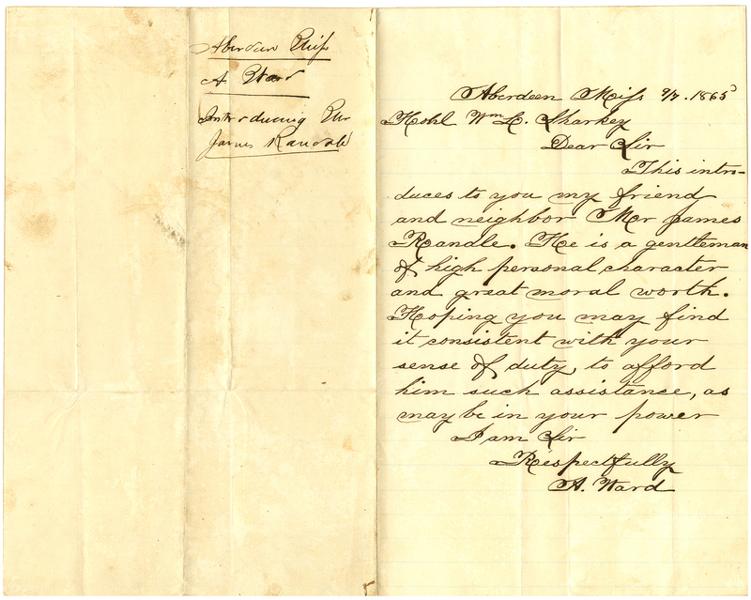 Aberdeen Miss
A Ward
Introducing Mr
James Randle
Aberdeen Miss 9/7. 1865
Wm L. Sharkey
Dear Sir
This intro-
duces to you my friend
and neighbor Mr James
Randle. He is a gentleman
of high personal character
and great moral worth.
Hoping you may find
it consistent with your
sense of duty, to afford
him such assistance, as
may be in your power
I am Sir
Respectfully
A. Ward